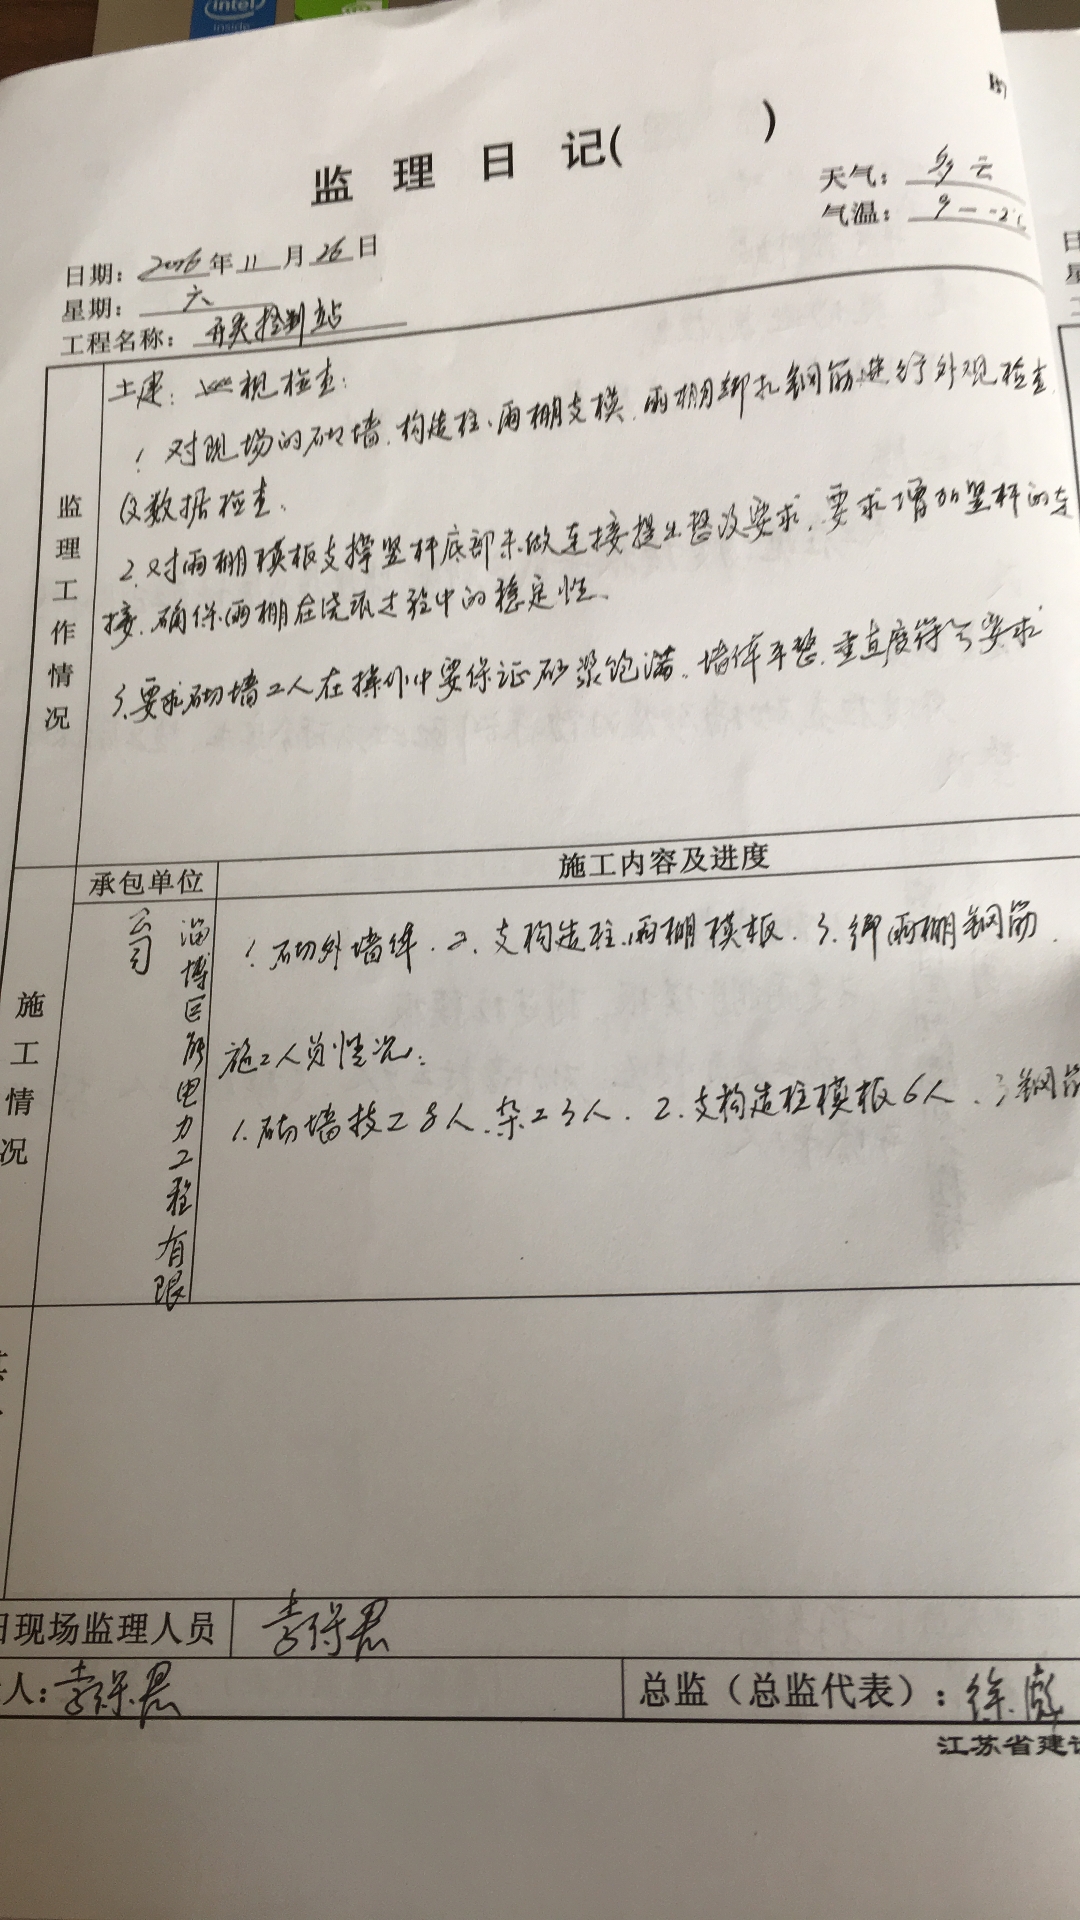 intel
inside
监 理 日 记( )
天气: 多云
气温: 9—-2℃
日期: 2016年11月26日
星期: 六
工程名称: 开关控制站
监理工作情况
土建: 巡视检查:
1. 对现场的砌墙、构造柱、雨棚支模、雨棚绑扎钢筋进行外观检查
及数据检查.
2. 对雨棚模板支撑竖杆底部未做连接提出整改要求, 要求增加竖杆的连
接, 确保雨棚在浇砼过程中的稳定性.
3. 要求砌墙工人在操作中要保证砂浆饱满, 墙体平整, 垂直度符合要求
施工情况
承包单位
施工内容及进度
淄博巨能电力工程有限
公司
1. 砌外墙体. 2. 支构造柱、雨棚模板. 3. 绑雨棚钢筋.
施工人员情况:
1. 砌墙技工8人、杂工3人. 2. 支构造柱模板6人. 3 钢筋
日现场监理人员
李保君
人: 李保君
总监（总监代表）: 徐彪
江苏省建